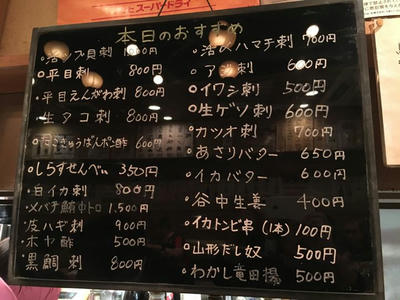 スーパードライ
本日のおすすめ
活ツブ貝刺
平目刺 800円
平目えんがわ刺 800円
生タコ刺 800円
きゅうばんポン酢 600円
しらすせんべい 350円
白イカ刺 800円
メバチ鮪中トロ 1,500円
皮ハギ刺 900円
ホヤ酢 500円
黒鯛刺 800円
活〆ハマチ刺 700円
アジ刺 600円
イワシ刺 500円
生ゲソ刺 600円
カツオ刺 700円
あさりバター 650円
イカバター 600円
谷中生姜 400円
イカトンビ串(1本)100円
山形だし奴 500円
わかし竜田揚 500円